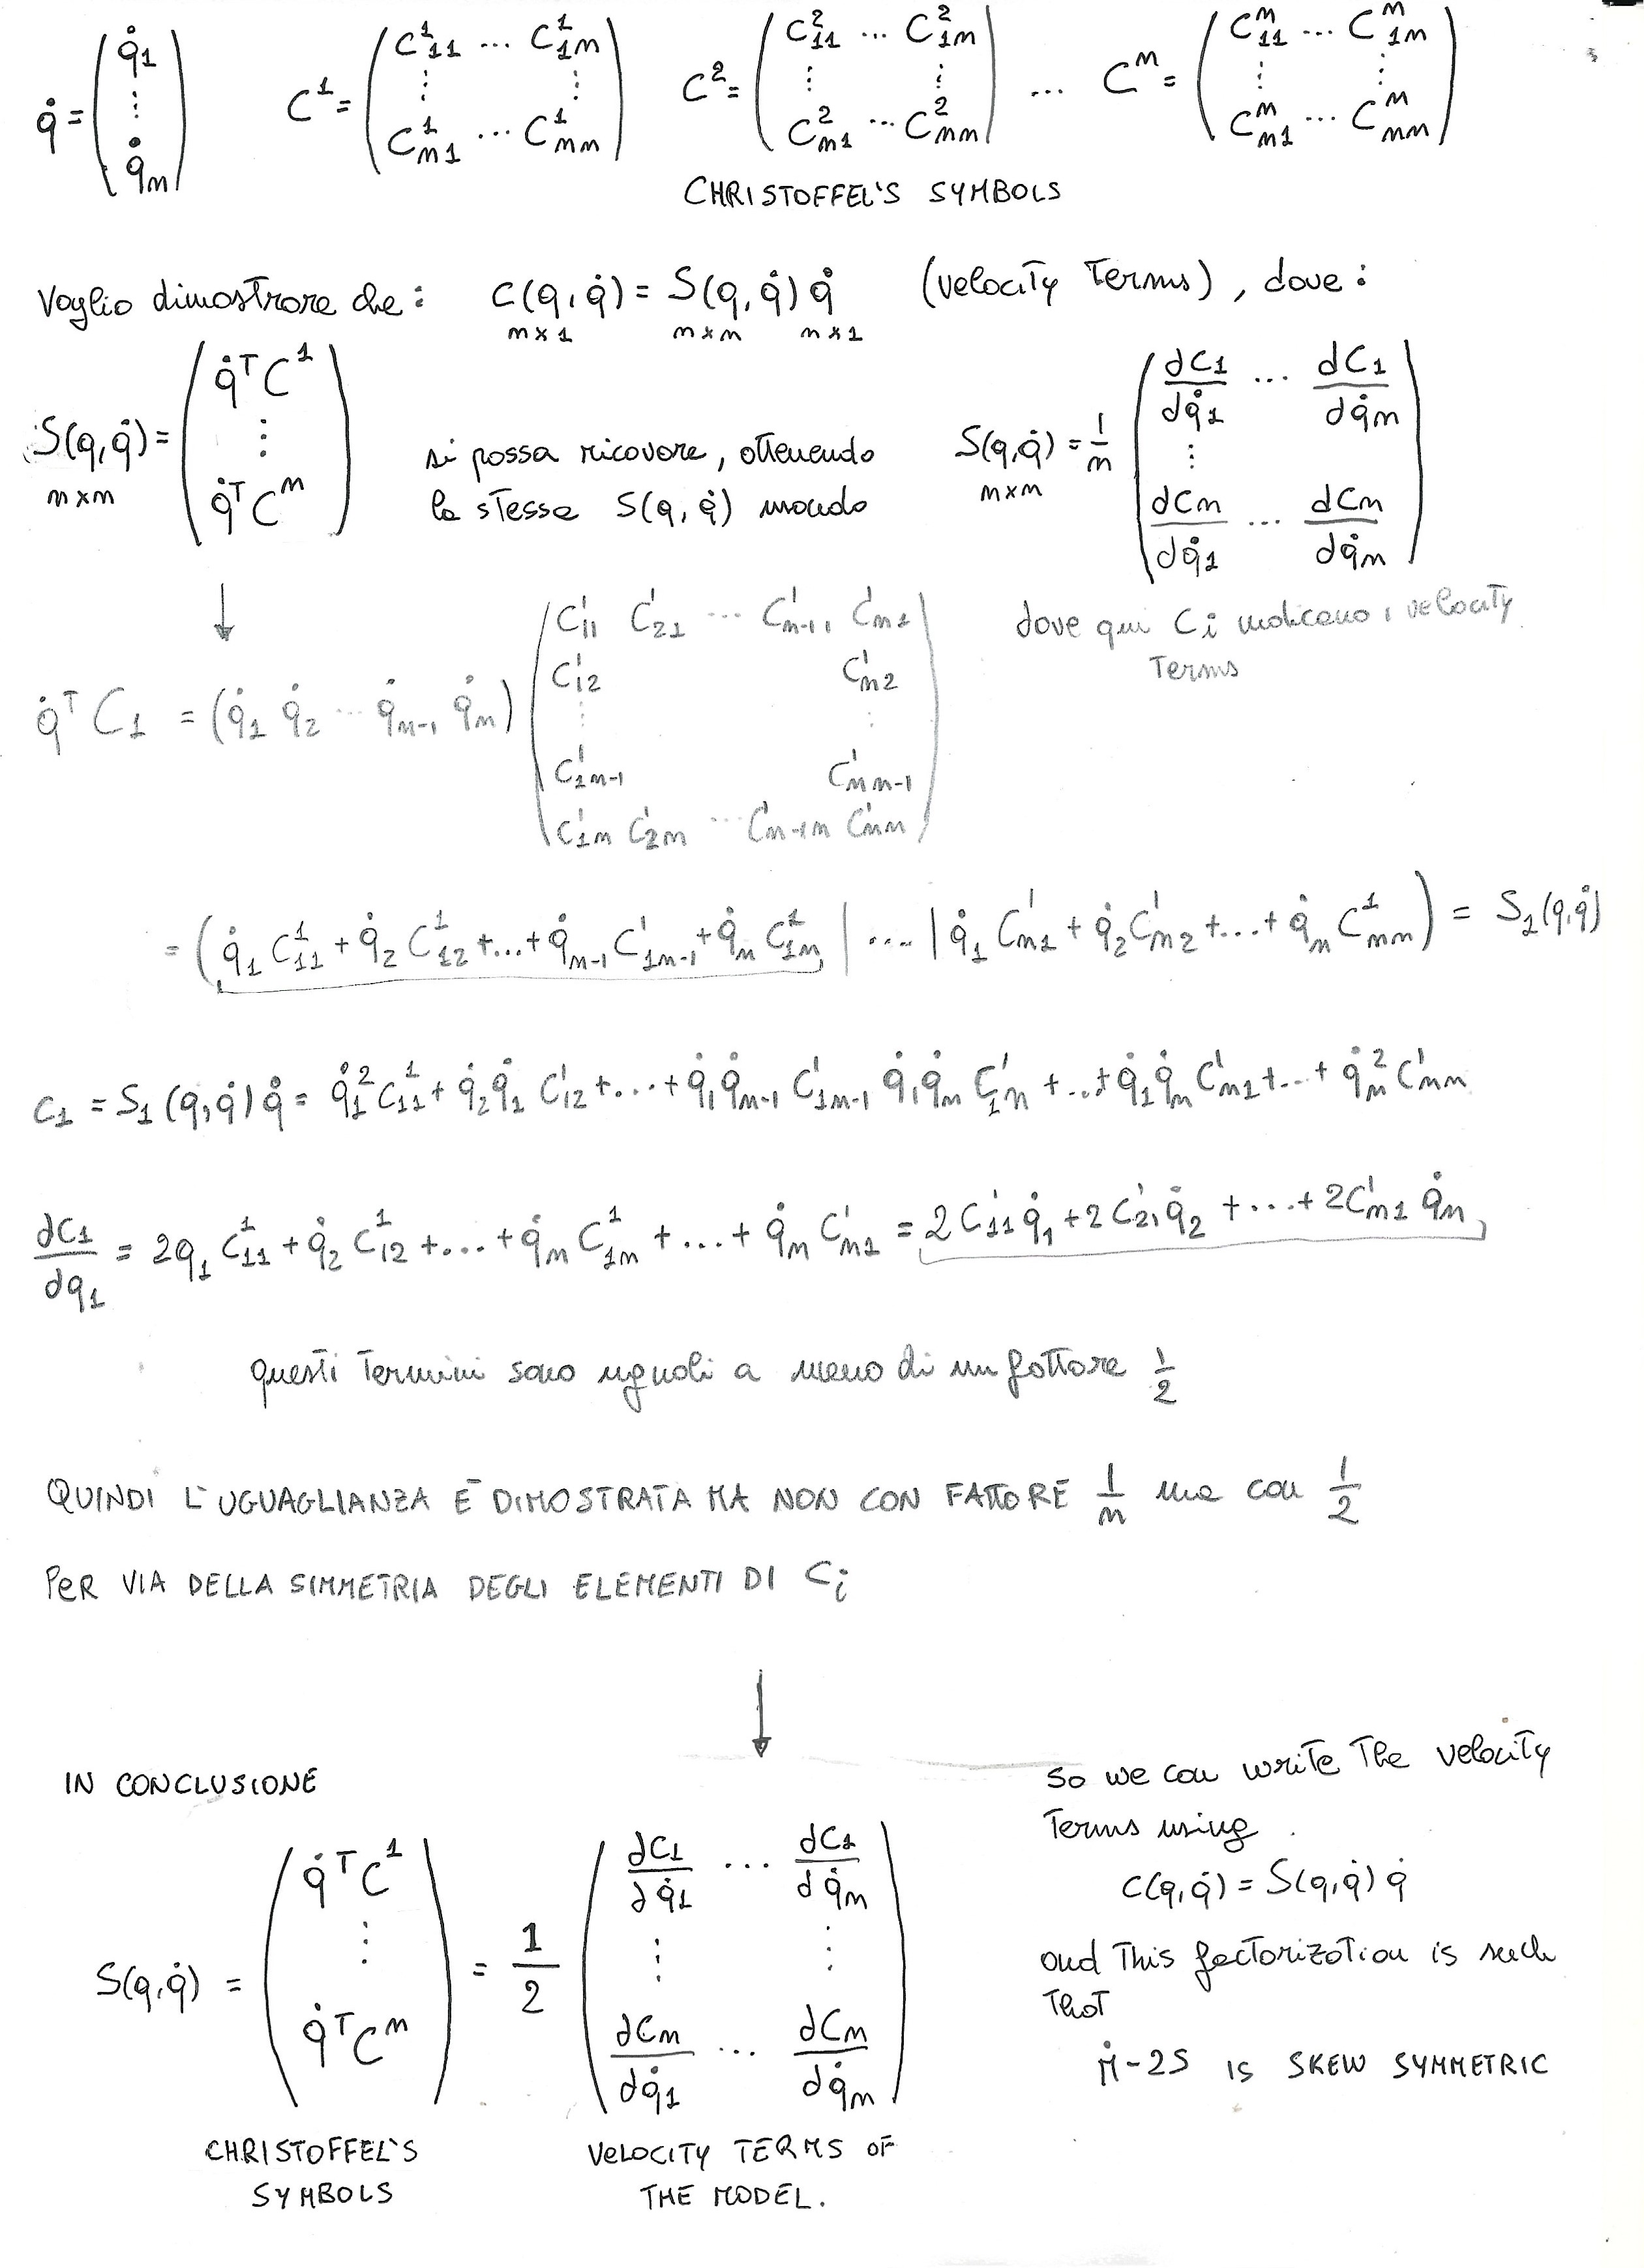 q̇ = (q̇1 ⋮ q̇n) C^1 = (C^1_11 ... C^1_1n ⋮ ⋮ C^1_n1 ... C^1_nn) C^2 = (C^2_11 ... C^2_1n ⋮ ⋮ C^2_n1 ... C^2_nn) ... C^n = (C^n_11 ... C^n_1n ⋮ ⋮ C^n_n1 ... C^n_nn)
CHRISTOFFEL'S SYMBOLS
Voglio dimostrare che: c(q,q̇) = S(q,q̇) q̇ (velocity Terms), dove:
n×1 n×n n×1
S(q,q̇) = (q̇^T C^1 ⋮ q̇^T C^n) si possa ricavare, ottenendo S(q,q̇) = 1/n (∂c1/∂q̇1 ... ∂c1/∂q̇n ⋮ ∂cn/∂q̇1 ... ∂cn/∂q̇n)
n×n la stessa S(q,q̇) usando n×n
↓ dove qui ci indicano i velocity
Terms
q̇^T C1 = (q̇1 q̇2 ... q̇n-1 q̇n) (C^1_11 C^1_21 ... C^1_n-11 C^1_n1 C^1_12 C^1_n2 ⋮ ⋮ C^1_1n-1 C^1_nn-1 C^1_1n C^1_2n ... C^1_n-1n C^1_nn)
= (q̇1 C^1_11 + q̇2 C^1_12 +...+ q̇n-1 C^1_1n-1 + q̇n C^1_1n | .... | q̇1 C^1_n1 + q̇2 C^1_n2 +...+ q̇n C^1_nn) = S1(q,q̇)
c1 = S1(q,q̇) q̇ = q̇1^2 C^1_11 + q̇2 q̇1 C^1_12 +...+ q̇1 q̇n-1 C^1_1n-1 q̇1 q̇n C^1_1n +..+ q̇1 q̇n C^1_n1 +..+ q̇n^2 C^1_nn
∂c1/∂q1 = 2q1 C^1_11 + q̇2 C^1_12 +...+ q̇n C^1_1n +...+ q̇n C^1_n1 = 2 C^1_11 q̇1 + 2 C^1_21 q̇2 +...+ 2 C^1_n1 q̇n
questi Termini sono uguali a meno di un fattore 1/2
QUINDI L'UGUAGLIANZA È DIMOSTRATA MA NON CON FATTORE 1/n ma con 1/2
PER VIA DELLA SIMMETRIA DEGLI ELEMENTI DI Ci
↓
IN CONCLUSIONE
S(q,q̇) = (q̇^T C^1 ⋮ q̇^T C^n) = 1/2 (∂c1/∂q̇1 ... ∂c1/∂q̇n ⋮ ⋮ ∂cn/∂q̇1 ... ∂cn/∂q̇n)
CHRISTOFFEL'S
SYMBOLS
VELOCITY TERMS OF
THE MODEL.
So we can write The velocity
Terms using
c(q,q̇) = S(q,q̇) q̇
and This factorization is such
That
Ṁ-2S IS SKEW SYMMETRIC